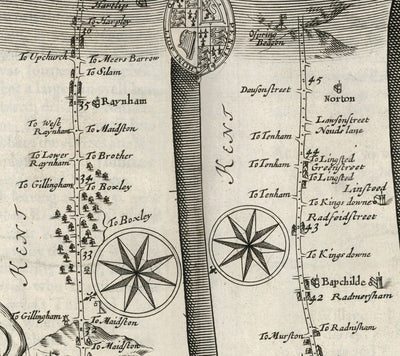 Hartlip
To Harpley
36
To Upchurch
To Meers Barrow
To Silam
35
Raynham
To West
Raynham
To Maidston
To Lower
Raynham
To Brother
34
To Gillingham
To Boxley
To Boxley
KENT
33
To Gillingham
To Maidston
To Maidston
KENT
Ospring
Beacon
45
Dawsonstreet
Norton
Lawsonstreet
Nouds lane
To Tenham
44
To Tenham
To Lingsted
Greenstreet
To Lingsted
Linsteed
To Tenham
To Kings downe
Radfeidstreet
43
To Kings downe
Bapchilde
42
Radmersham
To Murston
To Radnisham